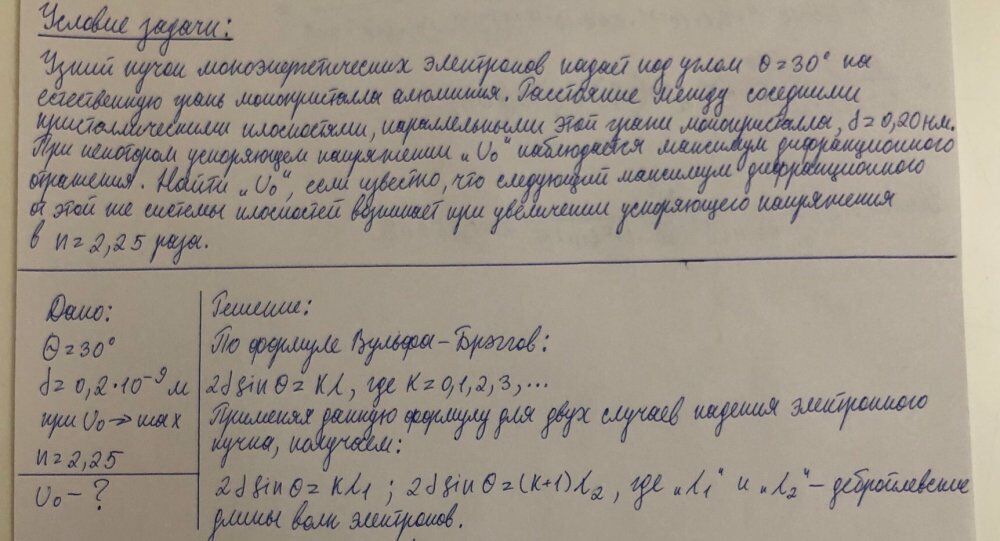 Условие задачи:
Узкий пучок моноэнергетических электронов падает под углом θ=30° на
естественную грань монокристалла алюминия. Расстояние между соседними
кристаллическими плоскостями, параллельными этой грани монокристалла, d=0,20 нм.
При некотором ускоряющем напряжении „U₀" наблюдается максимум дифракционного
отражения. Найти „U₀", если известно, что следующий максимум дифракционного
от этой же системы плоскостей возникает при увеличении ускоряющего напряжения
в n=2,25 раза.
Дано:
θ=30°
d=0,2·10⁻⁹ м
при U₀→max
n=2,25
U₀-?
Решение:
По формуле Вульфа-Брэггов:
2d sin θ = Kλ, где K=0,1,2,3,...
Применяя данную формулу для двух случаев падения электронного
пучка, получаем:
2d sin θ = Kλ₁ ; 2d sin θ = (K+1)λ₂, где „λ₁" и „λ₂" – дебройлевские
длины волн электронов.